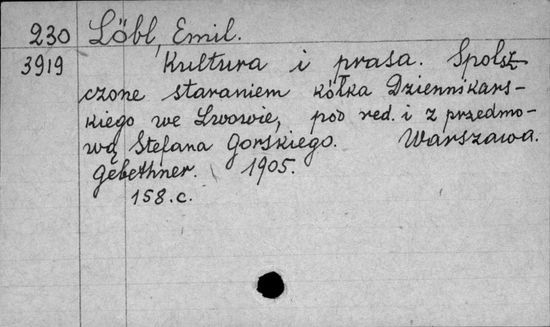 230 Löbl, Emil.
3919 Kultura i prasa. Spolsz-
czone staraniem kółka Dziennikars-
kiego we Lwowie, pod red. i z przedmo-
wą Stefana Gorskiego. Warszawa.
Gebethner. 1905.
158.c.